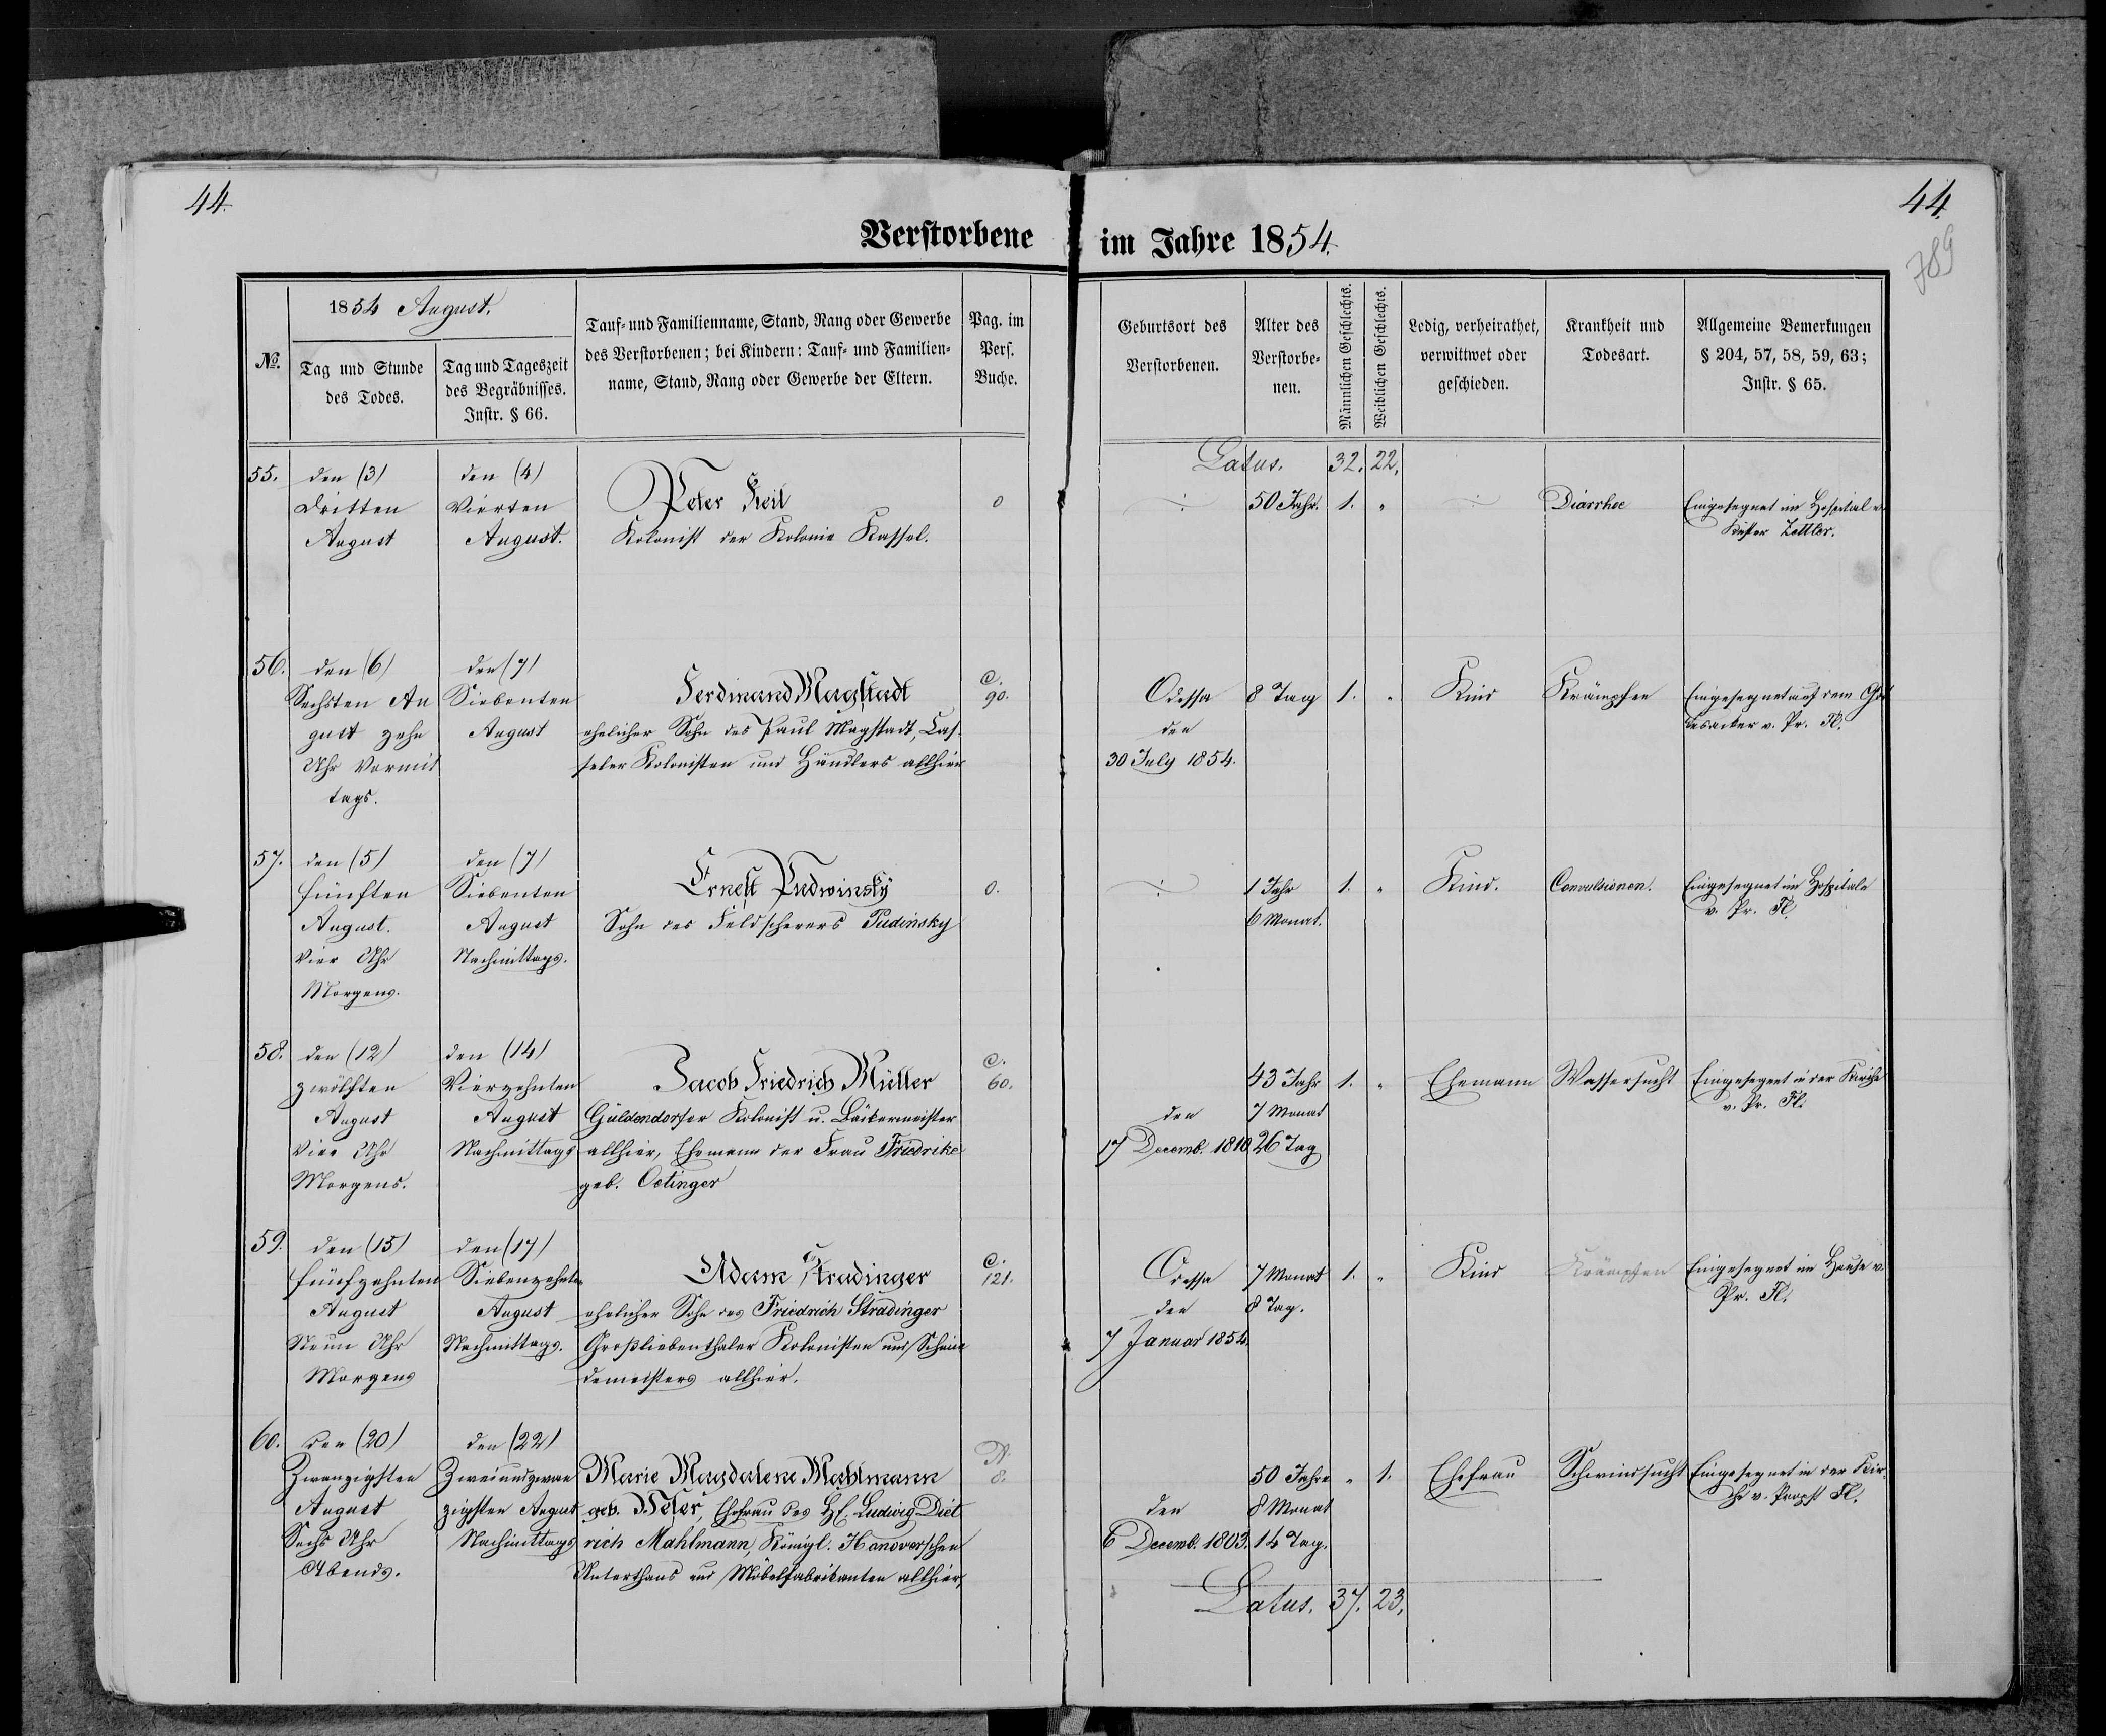 44.
44.
789
Verstorbene im Jahre 1854.
№.
1854 August.
Tag und Stunde
des Todes.
Tag und Tageszeit
des Begräbnisses.
Instr. § 66.
Tauf- und Familienname, Stand, Rang oder Gewerbe
des Verstorbenen; bei Kindern: Tauf- und Familien-
name, Stand, Rang oder Gewerbe der Eltern.
Pag. im
Pers.
Buche.
Geburtsort des
Verstorbenen.
Alter des
Verstorbe-
nen.
Männlichen Geschlechts.
Weiblichen Geschlechts.
Ledig, verheirathet,
verwittwet oder
geschieden.
Krankheit und
Todesart.
Allgemeine Bemerkungen
§ 204, 57, 58, 59, 63;
Instr. § 65.
Latus. 32. 22.
55.
den (3)
dritten
August
den (4)
Vierten
August.
Peter Keil
Kolonist der Kolonie Kassel.
0
50 Jahr.
1.
"
Diarrhee
Eingesegnet im Hospital v.
Küster Zettler.
56.
den (6)
Sechsten Au
gust zehn
Uhr Vormit
tags.
den (7)
Siebenten
August
Ferdinand Magstadt
ehelicher Sohn des Paul Magstadt, Cas-
seler Kolonisten und Händlers allhier
C.
90.
Odessa
den
30 July 1854.
8 Tag
1.
"
Kind
Krämpfen
Eingesegnet auf dem Got
tesacker v. Pr. Fl.
57.
den (5)
fünften
August.
Vier Uhr
Morgens.
den (7)
Siebenten
August
Nachmittags.
Ernest Pudwinsky
Sohn des Feldscherers Pudinsky
0.
1 Jahr
6 Monat.
1.
"
Kind.
Convulsionen.
Eingesegnet im Hospitale
v. Pr. Fl.
58.
den (12)
zwölften
August
Vier Uhr
Morgens.
den (14)
Vierzehnten
August
Nachmittags
Jacob Friedrich Müller
Güldendorfer Kolonist u. Bäckermeister
allhier, Ehemann der Frau Friedrike
geb. Oetinger
C.
60.
den
17 Decemb. 1810
43 Jahr
7 Monat
26 Tag
1.
"
Ehemann
Wassersucht
Eingesegnet in der Kirche
v. Pr. Fl.
59.
den (15)
fünfzehnten
August
Neun Uhr
Morgens
den (17)
Siebenzehnten
August
Nachmittags.
Adam Stradinger
ehelicher Sohn des Friedrich Stradinger
Großliebenthaler Kolonisten und Schmie
demeisters allhier.
C.
121.
Odessa
den
7 Januar 1854.
7 Monat
8 Tag.
1.
"
Kind
Krämpfen
Eingesegnet im Hause v.
Pr. Fl.
60.
den (20)
Zwanzigsten
August
Sechs Uhr
Abends.
den (22)
Zweiundzwan
zigsten August
Nachmittags
Marie Magdalena Mahlmann
geb. Weser, Ehefrau des H. Ludwig Diet
rich Mahlmann, Königl. Hanoverschen
Unterthans und Möbelfabrikanten allhier,
8.
den
6 Decemb. 1803.
50 Jahre
8 Monat
14 Tag.
"
1.
Ehefrau
Schwindsucht
Eingesegnet in der Kir
che v. Propst Fl.
Latus. 37. 23.